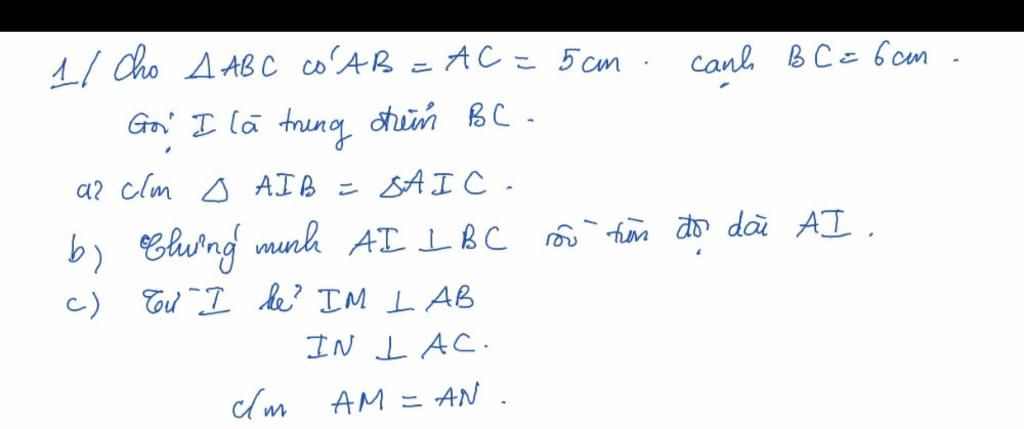 1/ Cho △ABC có AB = AC = 5cm. cạnh BC = 6cm.
Gọi I là trung điểm BC.
a? c/m △ AIB = △AIC.
b) Chứng minh AI ⊥ BC rồi tìm độ dài AI.
c) Từ I kẻ IM ⊥ AB
IN ⊥ AC.
c/m AM = AN.